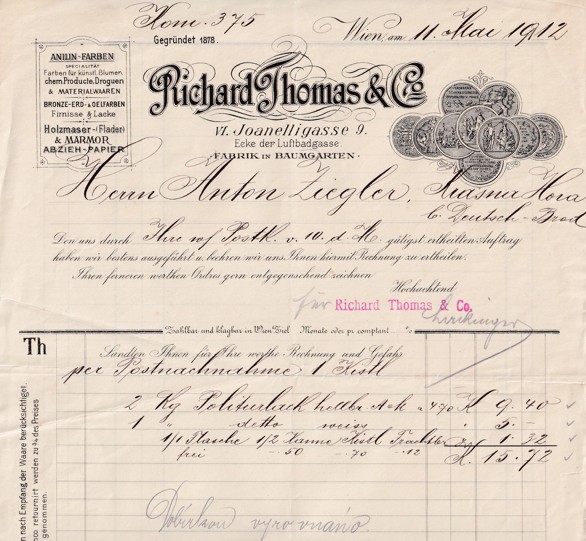 Kom. 375
Wien, am 11. Mai 1912
Gegründet 1878.
ANILIN-FARBEN
SPECIALITÄT
Farben für künstl. Blumen.
chem. Producte, Droguen
& MATERIALWAAREN
BRONZE-ERD- & OELFARBEN
Firnisse & Lacke
Holzmaser-(Flader)
& MARMOR
ABZIEH-PAPIER
Richard Thomas & Co
VI. Joanelligasse 9.
Ecke der Luftbadgasse
FABRIK IN BAUMGARTEN
Herrn Anton Ziegler, Krasna Hora
b. Deutsch-Brod
Den uns durch Ihre w/ Postk. v. 10. d. M. gütigst ertheilten Auftrag
haben wir bestens ausgeführt u. beehren wir uns Ihnen hiermit Rechnung zu ertheilen.
Ihren ferneren werthen Ordres gern entgegensehend zeichnen
Hochachtend
für Richard Thomas & Co.
Zahlbar und klagbar in Wien Ziel Monate oder pr. comptant %
Th
Sandten Ihnen für Ihre werthe Rechnung und Gefahr
per Postnachnahme 1 Kistl
2 Kg Politurlack hellbr. A ok a 4.70 K 9.40
1 " detto weiss " 5.-
1/1 Flasche 1/2 Kanne Kistl Frachtbr 1.32
frei -.50 -.70 -.12 K. 15.72
n nach Empfang der Waare berücksichtiget.
nco retournirt werden zu ¾ des Preises
genommen.
vyrovnáno